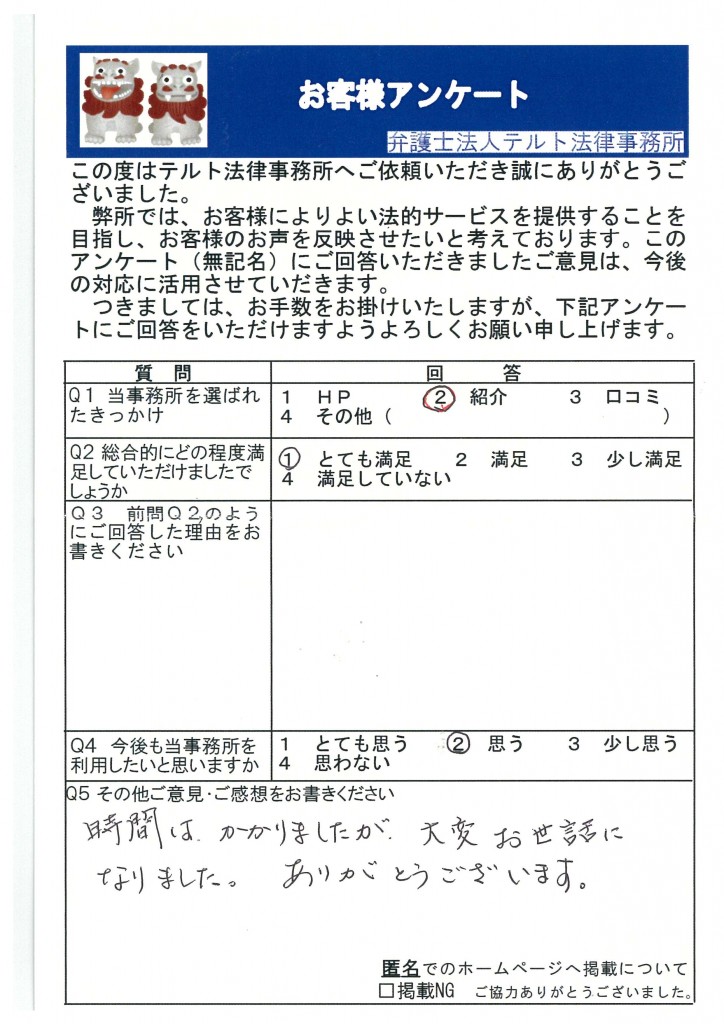 お客様アンケート
弁護士法人テルト法律事務所
この度はテルト法律事務所へご依頼いただき誠にありがとうご
ざいました。
　弊所では、お客様によりよい法的サービスを提供することを
目指し、お客様のお声を反映させたいと考えております。この
アンケート（無記名）にご回答いただきましたご意見は、今後
の対応に活用させていだきます。
　つきましては、お手数をお掛けいたしますが、下記アンケー
トにご回答をいただけますようよろしくお願い申し上げます。
質　問　回　答
Q1 当事務所を選ばれ
たきっかけ
1　ＨＰ　②　紹介　3　口コミ
4　その他（　）
Q2 総合的にどの程度満
足していただけましたで
しょうか
①　とても満足　2　満足　3　少し満足
4　満足していない
Ｑ３　前問Ｑ２のよう
にご回答した理由をお
書きください
Q4　今後も当事務所を
利用したいと思いますか
1　とても思う　②　思う　3　少し思う
4　思わない
Q5 その他ご意見・ご感想をお書きください
時間は、かかりましたが、大変お世話に
なりました。ありがとうございます。
匿名でのホームページへ掲載について
□掲載NG　ご協力ありがとうございました。